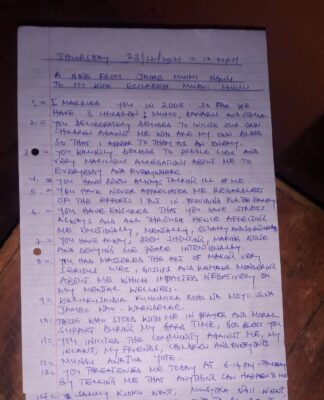 THURSDAY 23/12/2021 = 10:00PM
A NOTE FROM JAMES MUIMI
TO MY WIFE ELIZABETH MUIMI
1. = I MARRIED YOU IN 2005. SO FAR WE
HAVE 3 CHILDREN; MUMO,
2. = YOU DELIBERATELY DECIDED TO INCITE OUR OWN
CHILDREN AGAINST ME WHO ARE MY OWN BLOOD
SO THAT I APPEAR TO THEM AS AN ENEMY.
3. = YOU DECIDED TO PEDDLE LIES AND
VERY MALICIOUS ALLEGATION ABOUT ME TO
EVERYBODY AND EVERYWHERE
4. = YOU HAVE BEEN ALWAYS TALKING ILL OF ME.
5. = YOU HAVE NEVER APPRECIATED ME REGARDLESS
OF THE EFFORTS I PUT IN PROVIDING FOR THE FAMILY.
6. = YOU HAVE ENSURED THAT YOU GAVE STRESS
ALWAYS AND ALL THROUGH HENCE AFFECTING
ME EMOTIONALLY, MENTALLY, SOCIALLY AND
7. = YOU HAVE ALWAYS BEEN SHOUTING, MAKING NOISE
AND DENYING ME PEACE INTENTIONALLY.
8. = YOU HAD MASTERED THE ART OF MAKING VERY
SERIOUS LIES, GOSSIPS AND RUMOUR
ABOUT ME WHICH IMPACTED NEGATIVELY ON
MY MENTAL WELLNESS.
9 = KUHUMIZA ROHO NA MOYO SINA
JAMBO NAO. WAENDELEE.
10 = THOSE WHO STOOD WITH ME IN PRAYER AND MORAL
SUPPORT DURING MY HARD TIME, GOD BLESS YOU
11 = YOU INCITED THE COMMUNITY AGAINST ME, MY
INLAWS, MY FRIENDS, CHILDREN AND EVERYONE
12 = MUNGU ANAJUA YOTE.
13 = YOU THREATENED ME TODAY AT 6:14PM
BY TELLING ME THAT ANYTHING CAN HAPPEN TO ME
14 = SAMMY KIOKO WENT, MUSYOKA WENT